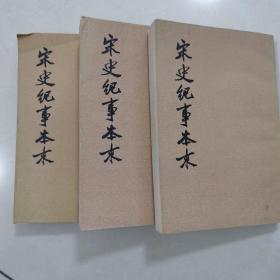 宋史纪事本末
宋史纪事本末
宋史纪事本末